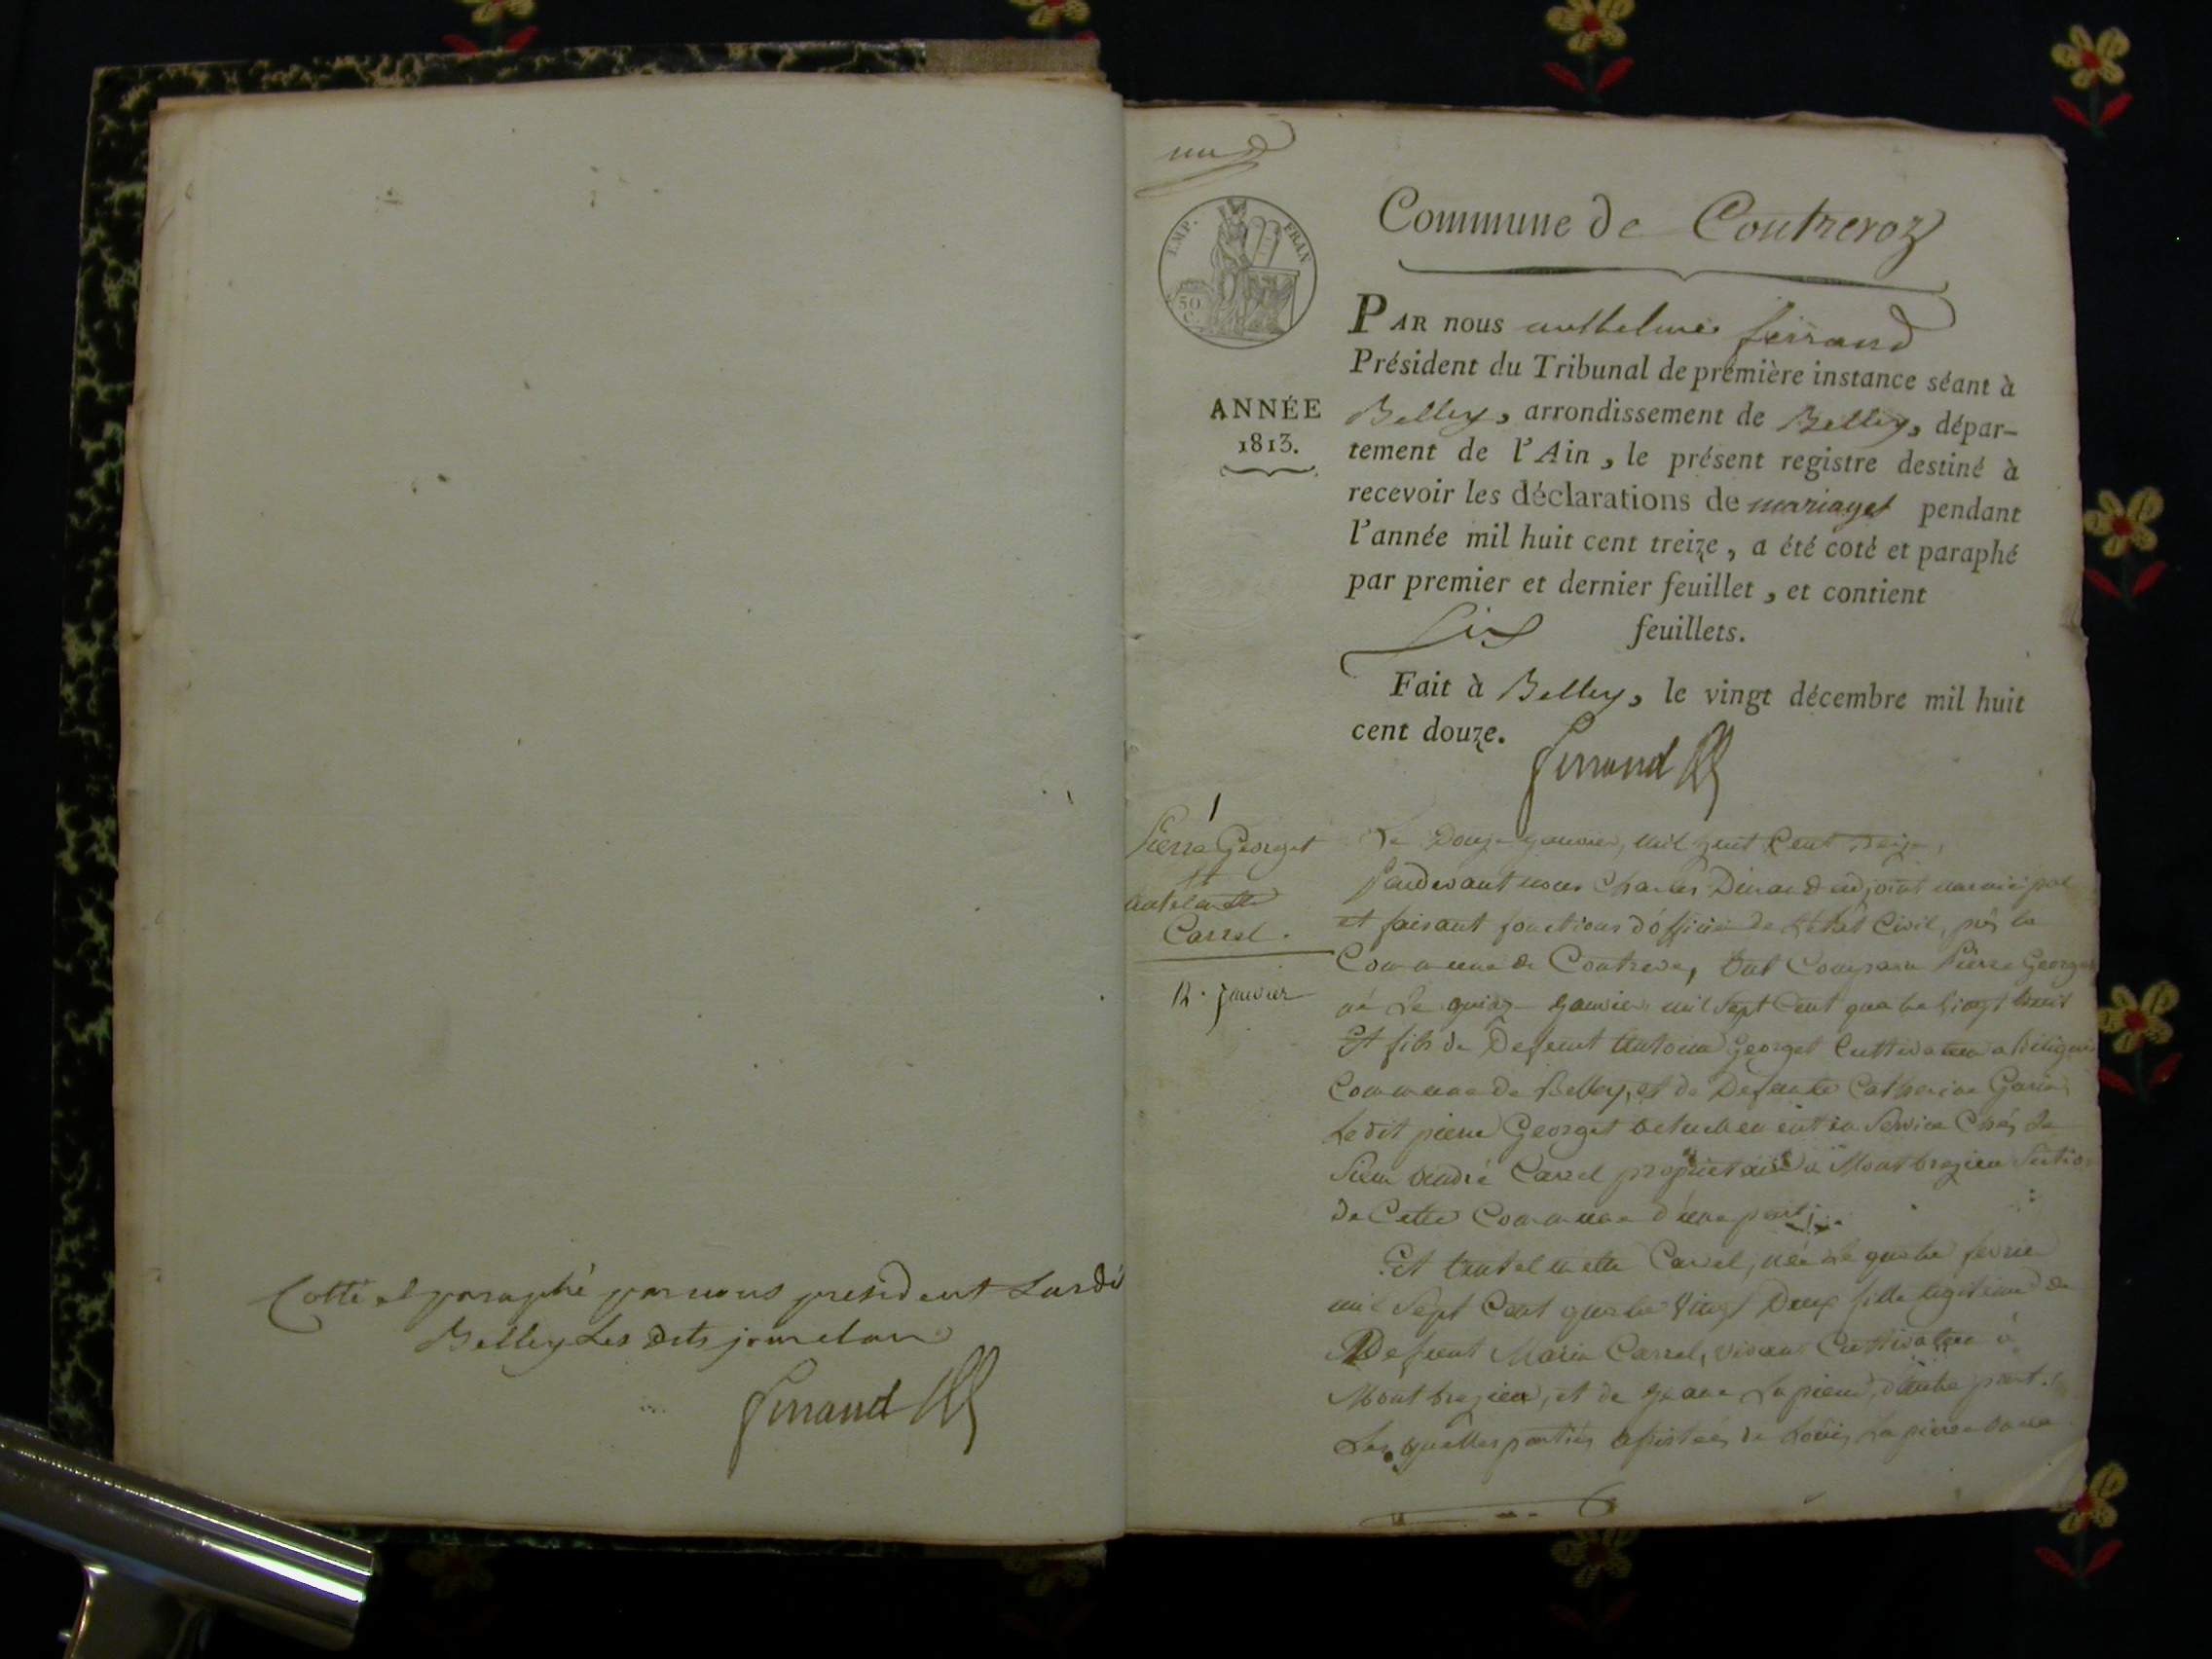 Cotté et paraphé par nous president susdit
Belley les dits jour et an
ferrand
une
EMP. FRAN
50
C.
Commune de Contrevoz
PAR nous anthelme ferrand
Président du Tribunal de première instance séant à
ANNÉE
1813.
Belley, arrondissement de Belley, dépar-
tement de l'Ain, le présent registre destiné à
recevoir les déclarations de mariages pendant
l'année mil huit cent treize, a été coté et paraphé
par premier et dernier feuillet, et contient
Six feuillets.
Fait à Belley, le vingt décembre mil huit
cent douze.
ferrand
1
Pierre Georget
et
Antelmette
Carrel.
12. janvier
Le Douze janvier, mil huit Cent treize,
pardevant nous Charles Dinand adjoint municipal
et faisant fonctions d'officier de L'état Civil, près la
Commune de Contrevoz, Est Comparu Pierre Georget
né Le quinze janvier mil Sept Cent quatre vingt huit
Et fils de Defunt Antoine Georget Cultivateur a
Commune de Belley, et de Defunte Catherine Garin
Ledit pierre Georget actuelement en Service Chés Le
Sieur André Carrel proprietaire à Montbrezieu Section
de Cette Commune d'une part;
Et Antelmette Carrel, née Le quatre fevrier
mil Sept Cent quatre Vingt Deux fille legitime de
Defunt Marin Carrel, vivant Cultivateur à
Montbrezieu, et de Jeane Lapierre, d'autre part.
Les quelles parties assistées de Loüis Lapierre